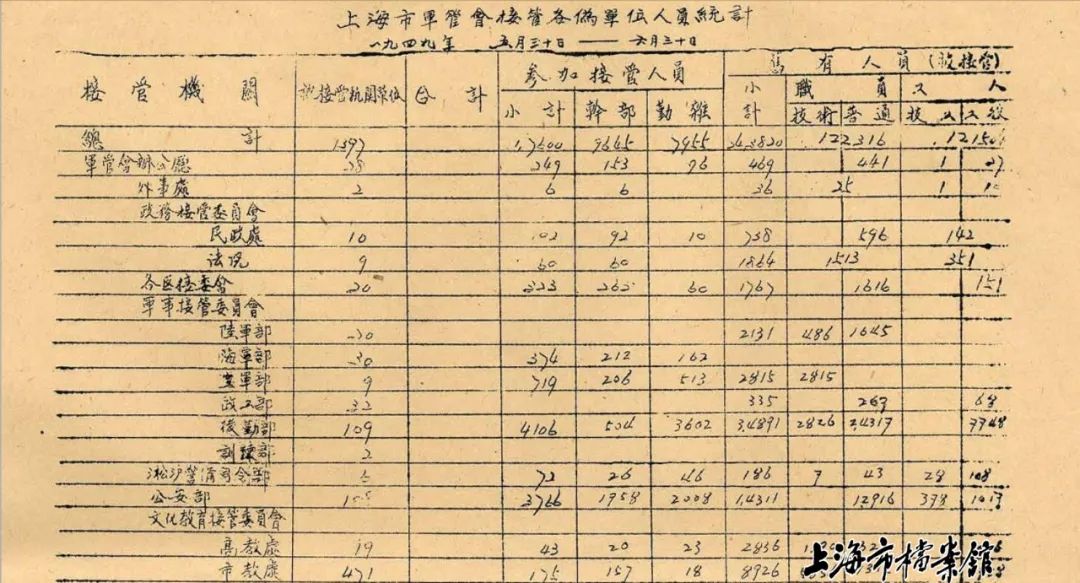 上海市軍管會接管各偽單位人員統計
一九四九年 五月三十日——六月三十日
接管機關 被接管机関單位 合計 參加接管人員 舊有人員(被接管)
小計 幹部 勤雜 小計 職員 工人
技術 普通 技工 工役
總計 1397 17600 9645 7955 243820 122316
軍管會辦公廳 38 249 153 96 469 441 1 27
外事處 2 6 6 36 25 1 10
政務接管委員會
民政處 10 102 92 10 738 596 142
法院 9 60 60 1864 1513 351
各區接委會 20 323 263 60 1767 1616 151
軍事接管委員會
陸軍部 30 2131 486 1645
海軍部 30 374 212 162
空軍部 9 719 206 513 2815 2815
政工部 32 335 267 68
後勤部 109 4106 504 3602 34891 2826 24317 7748
訓練部 2
淞沪警備司令部 72 26 46 186 7 43 28 108
公安部 3766 1958 2008 14311 12916 378 1017
文化教育接管委員會
高教處 19 43 20 23 2836
市教處 471 175 157 18 8926
上海市檔案館